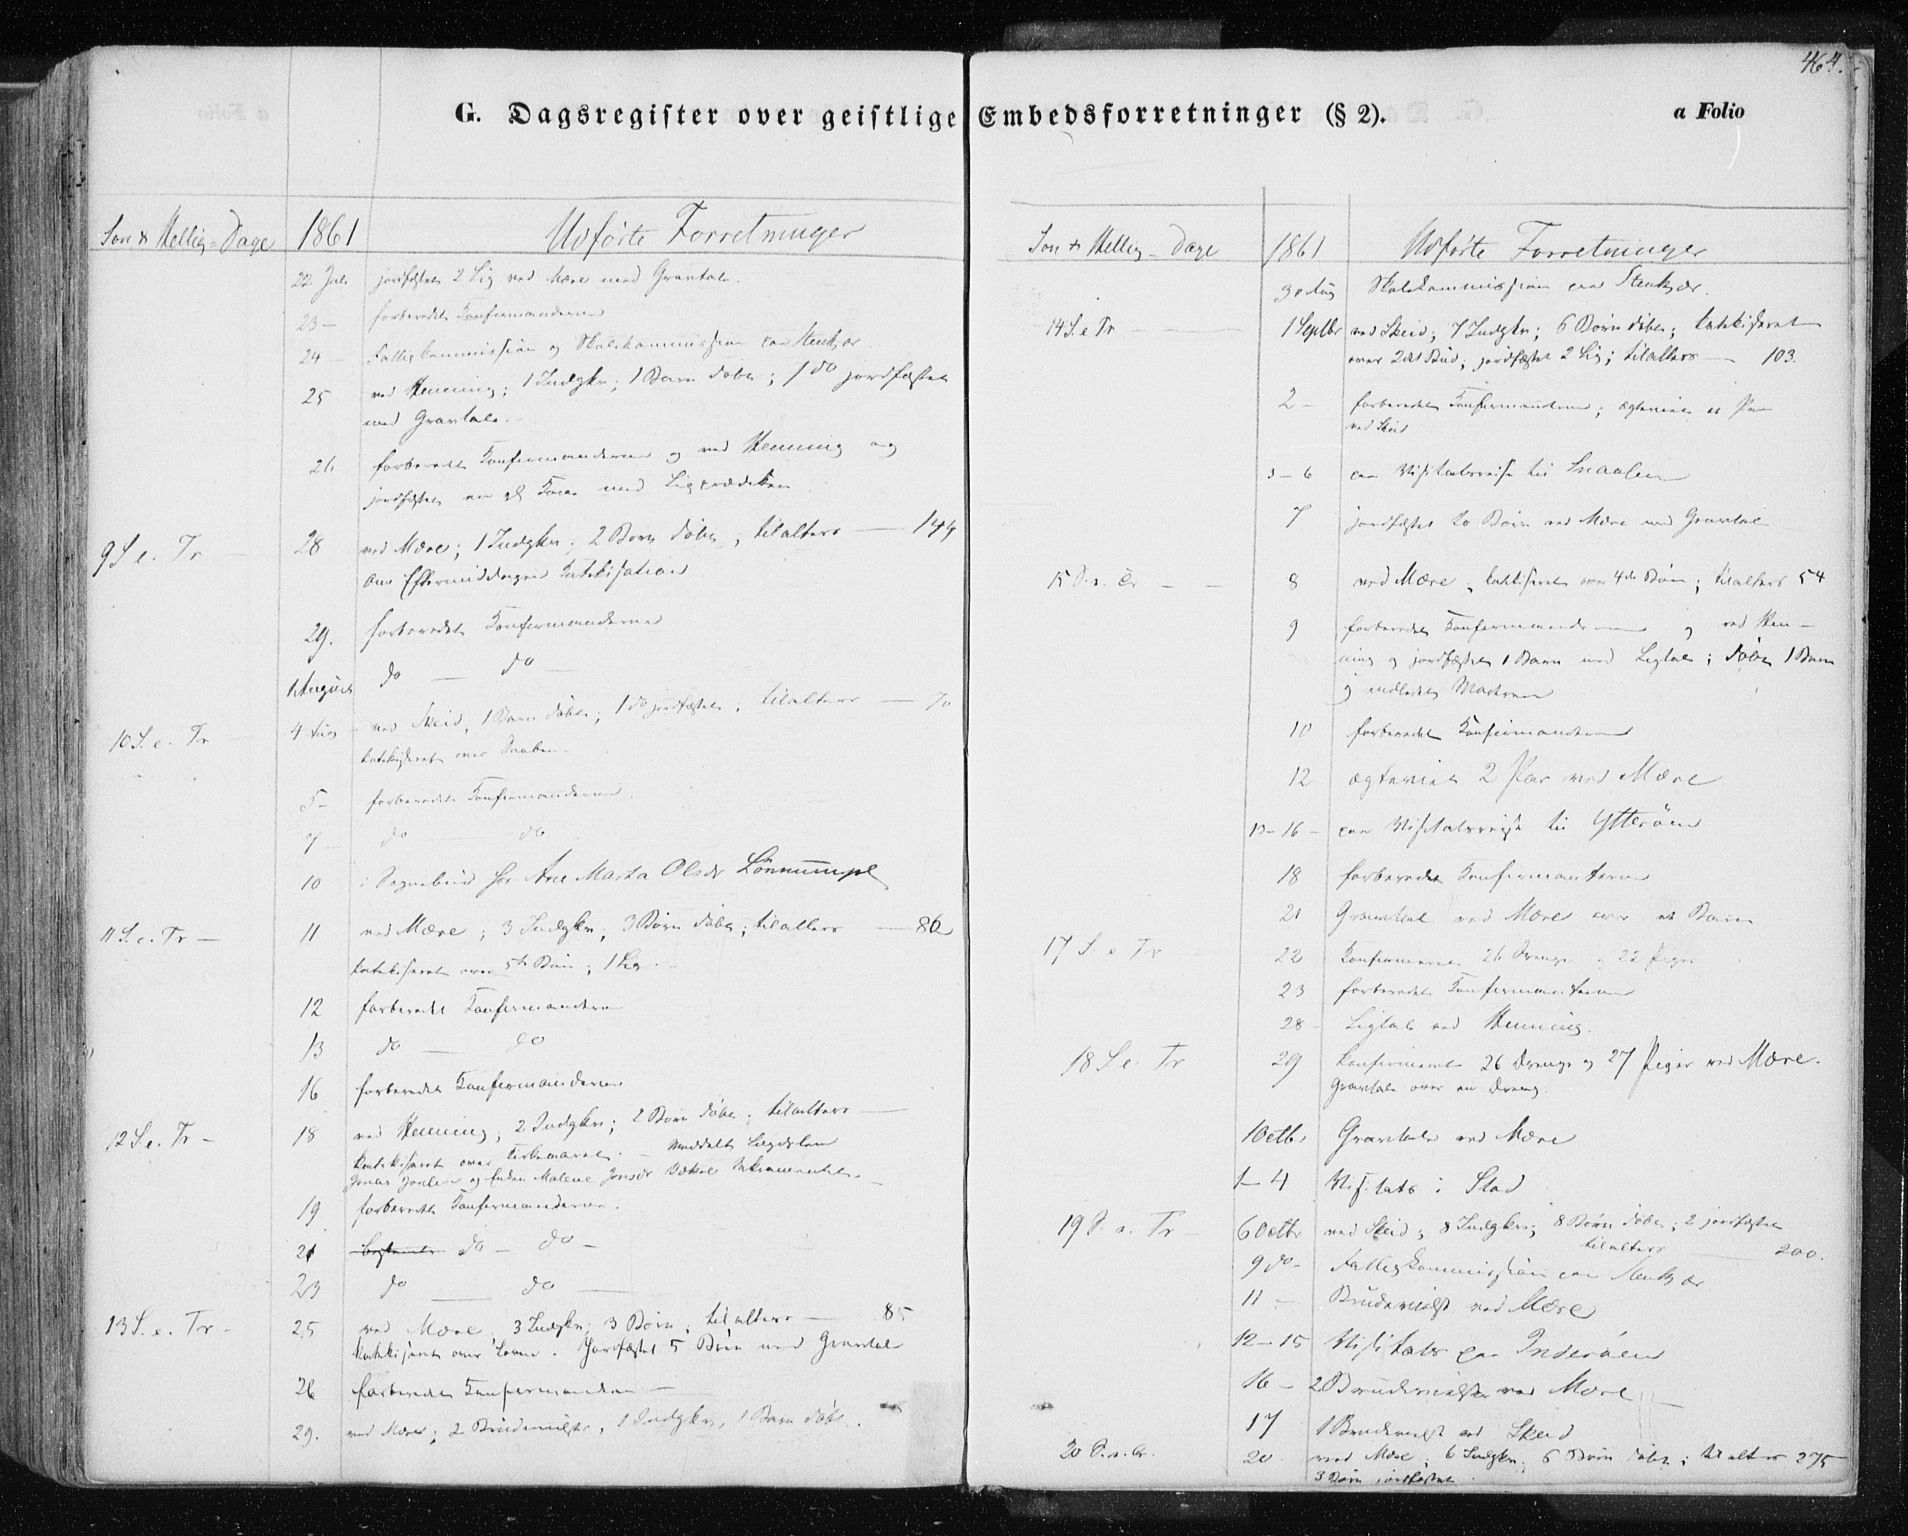 464.
G. Dagsregister over geistlige Embedsforretninger (§ 2).
a Folio
Søn & Hellig-Dage 1861 Udførte Forretninger
22 Juli jordfæstet 2 Lig ved Mære med Gravtale.
23 — forberedet Konfirmanderne
24 Fattigkommission og Skolekommission paa Stenkjær
25 ved Henning; 1 Indgkn; 1 Barn døbt; 1 do jordfæstet
med Gravtale.
26 forberedt Konfirmanderne og ved Henning og
jordfæstet en af med Ligprædiken
9 S. e. Tr — 28 ved Mære; 1 Indgkn; 2 Børn døbt; tilalters — 144
om Eftermiddagen Katekisation
29. forberedet Konfirmanderne
1 August do — do —
10 S. e. Tr 4 Aug — ved Skeid, 1 Barn døbt; 1 do jordfæstet; tilalters — 70
katekiseret over Daaben.
5 — forberedet Konfirmanderne.
7 — do — do
10 i Sognebud hos Ane Marta Olsdr Lønnumspl
11 S. e. Tr — 11 ved Mære; 3 Indgkn; 3 Børn døbt; tilalters — 86
katekiseret over 5te Bøn; 1 Lig. —
12 forberedet Konfirmanderne
13 do — do
16 forberedet Konfirmanderne
12 S. e. Tr — 18 ved Henning; 2 Indgkn; 2 Børn døbt; tilalters —
katekiseret over — meddelt
Jonas og Enken Malene Jonsdr Sakramentet. —
19 forberedet Konfirmanderne.
21 do — do —
23 do — do —
13 S. e. Tr — 25 ved Mære, 3 Indgkn; 3 Børn; tilalters — 85
Katekiseret over Loven. Jordfæstet 5 Børn med Gravtale
26 forberedet Konfirmanderne —
29. ved Mære; 2 Brudevielser, 1 Indgkn, 1 Barn døbt.
Søn & Hellig-Dage 1861 Udførte Forretninger
30 Aug Skolekommission paa Stenkjær.
14 S. e Tr — 1 Septbr ved Skeid; 7 Indgkn; 6 Børn døbt; katekiseret
over 2det Bud; jordfæstet 2 Lig; tilalters — 103.
2 — forberedet Konfirmanderne; ægteviet et Par
ved Skeid
3 – 6 paa Visitatsreise til Snaasen
7 jordfæstet to Børn ved Mære med Gravtale
15 S. e. Tr — — 8 ved Mære, katekiseret over 4de Bøn; tilalters 54
9 forberedet Konfirmanderne og ved Hen-
ning og jordfæstet 1 Barn med Ligtale; døbt 1 Barn
og indledet Moderen
10 forberedet Konfirmanderne
12 ægteviet 2 Par ved Mære
13 – 16 — paa Visitatsreise til Ytterøen
18 forberedet Konfirmanterne
21 Gravtale ved Mære over et Barn
17 S. e Tr — 22 Konfirmeret 26 Drenge og 22 Piger
23 forberedet Konfirmanterne
28 — Ligtale ved Henning.
18 S. e. Tr 29 konfirmeret 26 Drenge og 27 Piger ved Mære.
Gravtale over en Dreng.
1 Octbr Gravtale ved Mære
1 – 4 Visitats i Stod
19 S. e. Tr — 6 Octbr ved Skeid; 8 Indgkn; 8 Børn døbt; 2 jordfæstet
tilalters — 200.
9 do — Fattigkommission paa Stenkjær
11 — Brudevielse ved Mære
12 – 15 Visitats paa Inderøen
16 — 2 Brudevielser ved Mære
17 1 Brudevielse ved Skeid
20 S. e. Tr. 20 ved Mære, 6 Indgkn; 6 Børn døbt; tilalters 275
3 Børn jordfæstet.